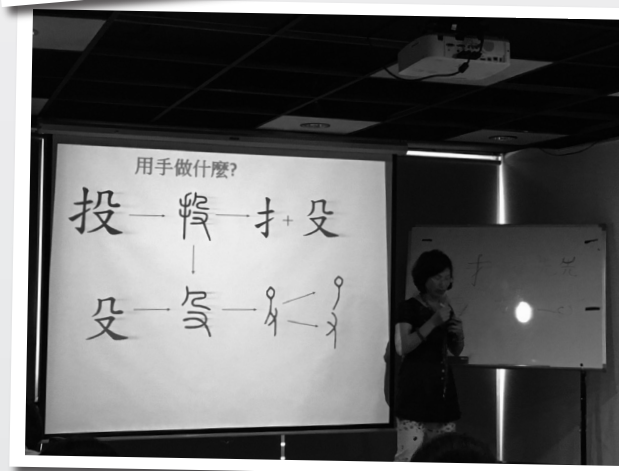 用手做什麼?
投 → 投 → 扌 + 殳
殳 → 殳 →
扌